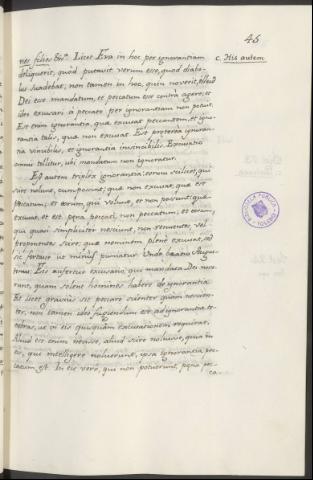 45
res filios &c. Licet Eva in hoc per ignorantiam
deliquerit, quod putavit verum esse, quod diabo-
lus suadebat, non tamen in hoc, quin noverit, illud
Dei esse mandatum, et peccatum esse contra agere; et
ideo excusari à peccato per ignorantiam non potuit.
Est enim ignorantia, quæ excusat peccantem, et igno-
rantia talis, quæ non excusat. Est præterea ignoran-
tia vincibilis, et ignorantia invincibilis. Excusatio
omnis tollitur, ubi mandatum non ignoratur.
c. His autem
Est autem triplex ignorantia: eorum scilicet, qui
scire nolunt, cum possint; quæ non excusat, quia est
peccatum; et eorum, qui volunt, et non possunt: quæ
excusat, et est pœna peccati, non peccatum; et eorum,
qui quasi simpliciter nesciunt, non renuentes, vel
proponentes scire: quæ neminem plene excusat, sed
sic fortasse ut minus puniatur. Unde
Eis aufertur excusatio, qui mandata Dei nove-
runt, quam solent homines habere de ignorantia.
Et licet gravius sit peccare scienter quam nescien-
ter, non tamen ideo fugiendum est ad ignorantiæ te-
nebras, ut in eis quisquam excusationem requirat.
Aliud est enim nescisse, aliud scire noluisse, quia in
eis, qui intelligere noluerunt, ipsa ignorantia pec-
catum est. In eis vero, qui non potuerunt, pœna pec-
ca-